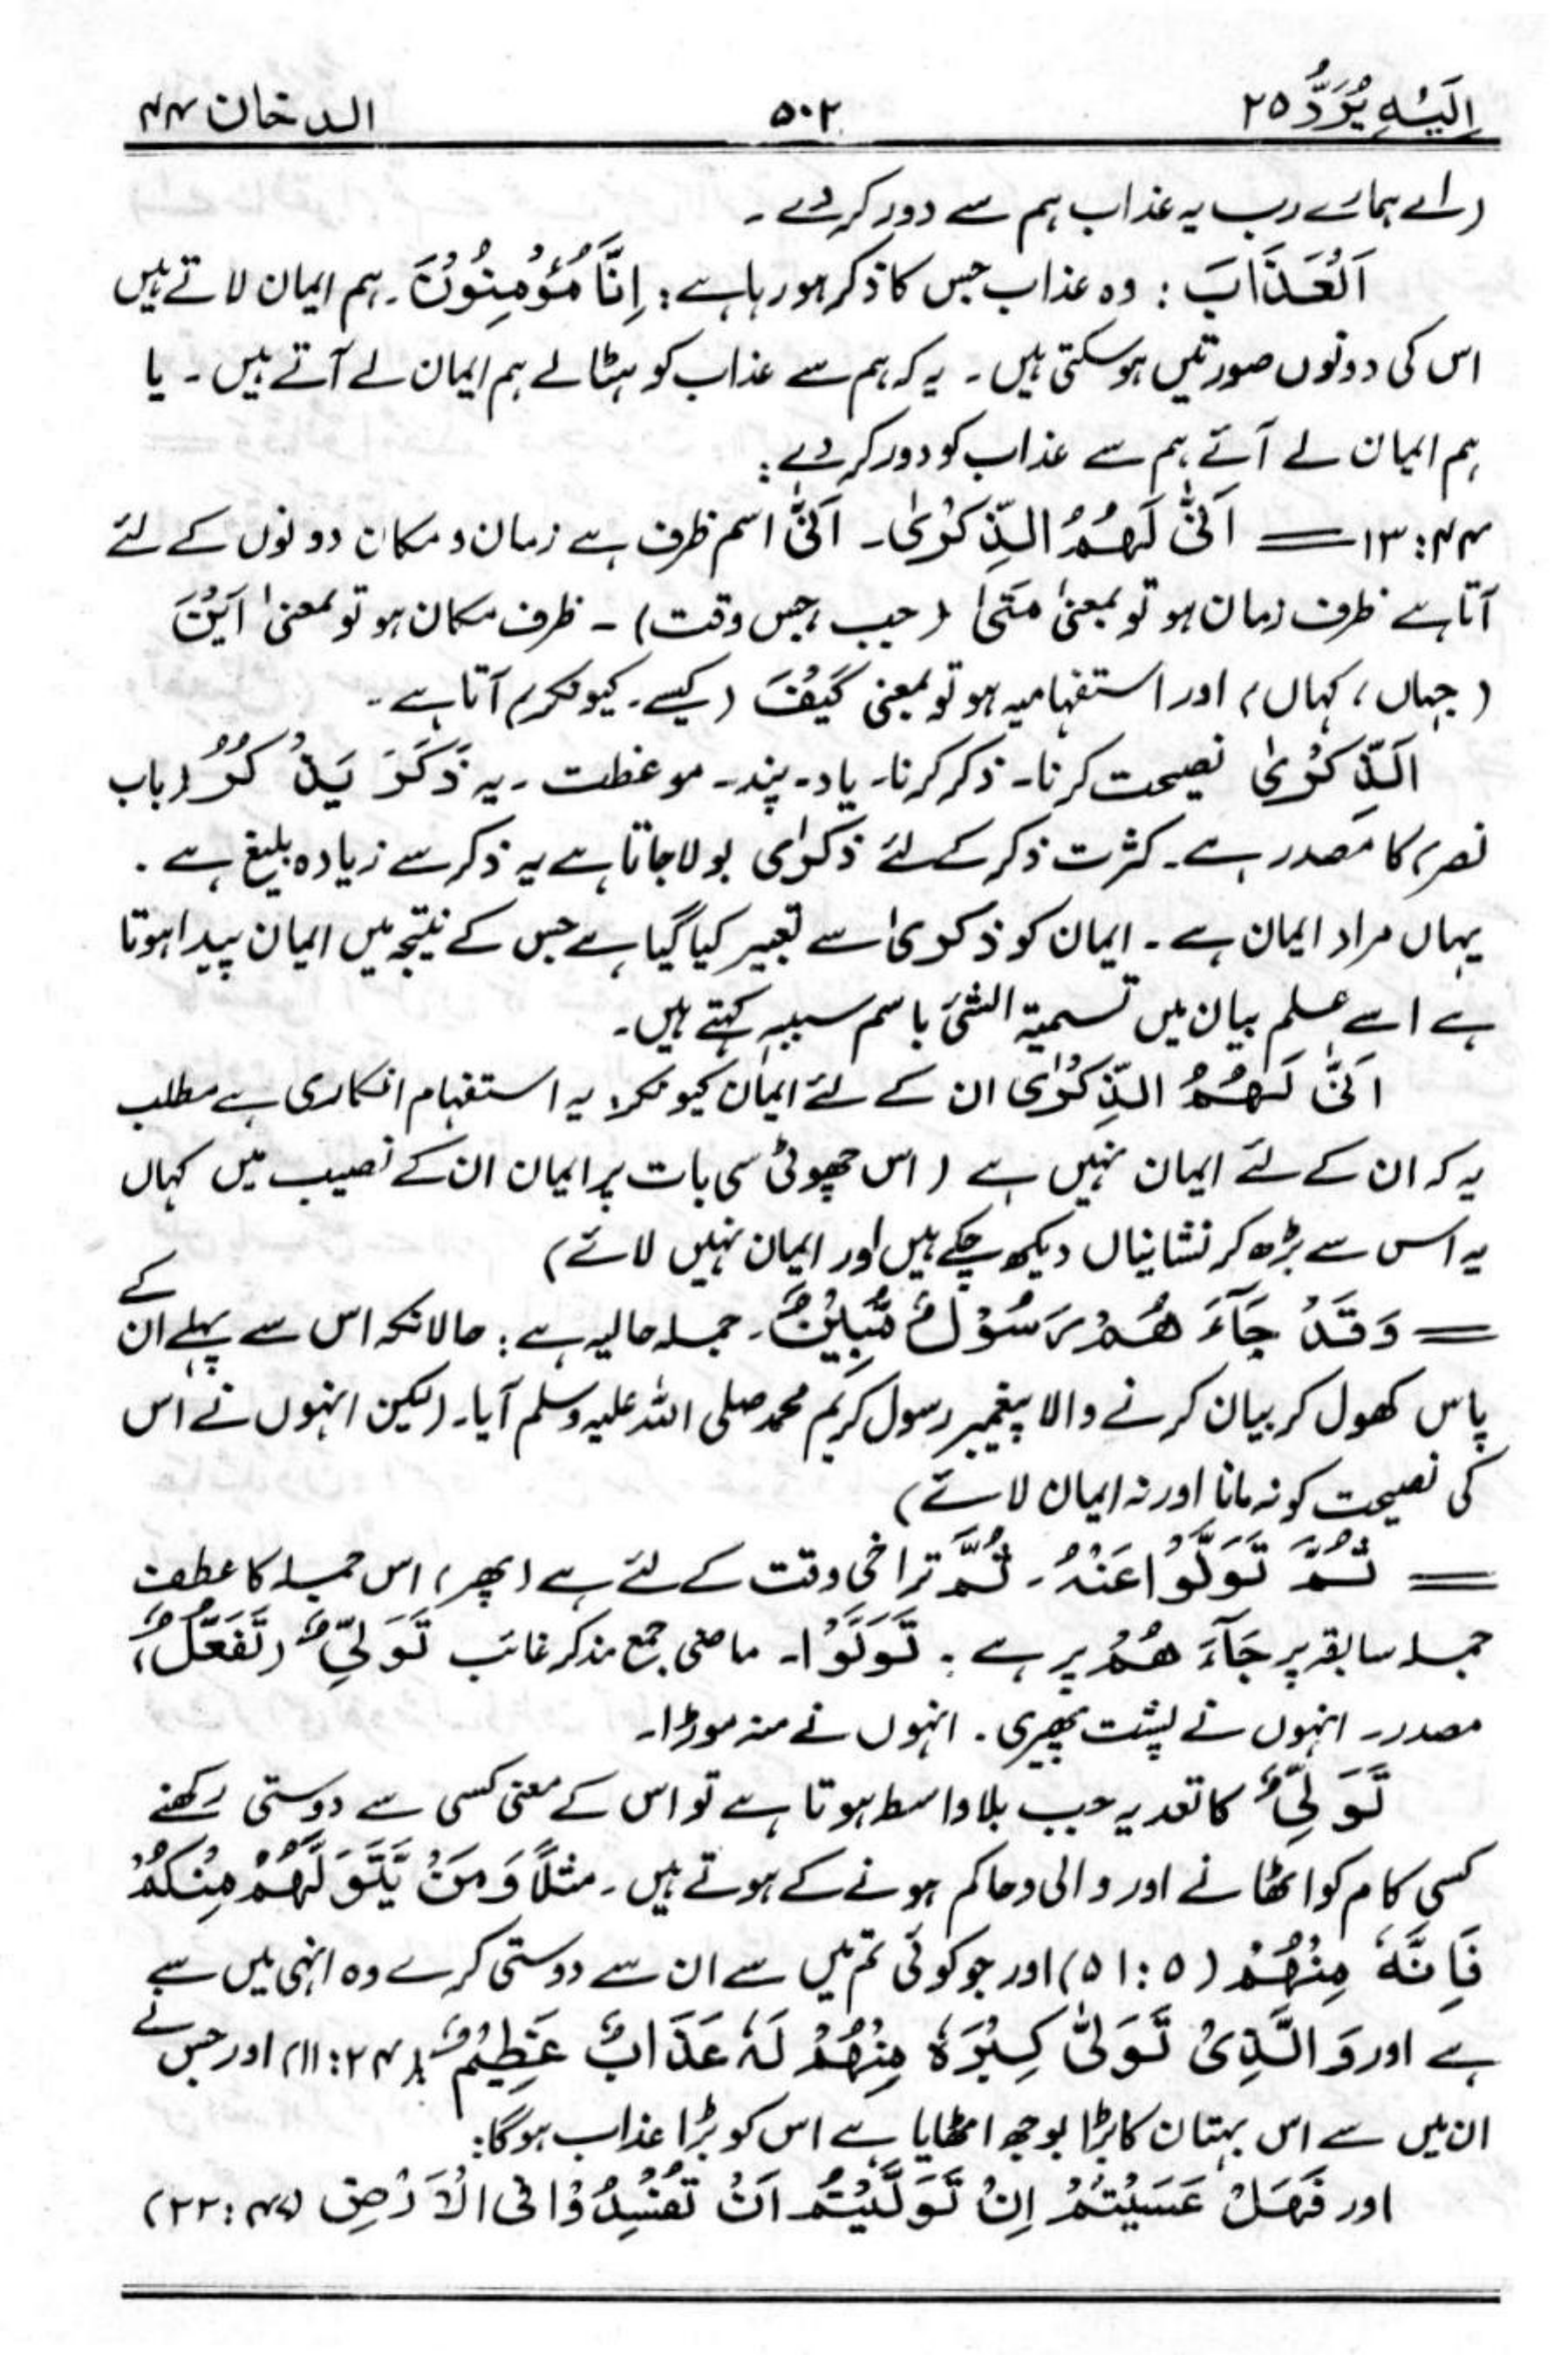 اِلَیْہِ یُرَدُّ ۲۵ ۵۰۲ الدخان ۴۴
(اے ہمارے رب یہ عذاب ہم سے دور کر دے ۔
اَلْعَذَابَ : وہ عذاب جس کا ذکر ہو رہا ہے : اِنَّا مُؤْمِنُوْنَ ۔ ہم ایمان لاتے ہیں
اس کی دونوں صورتیں ہو سکتی ہیں ۔ یہ کہ ہم سے عذاب کو ہٹا لے ہم ایمان لے آتے ہیں ۔ یا
ہم ایمان لے آئے ہم سے عذاب کو دور کر دے :
۴۴ : ۱۳ = اَنّٰی لَہُمُ الذِّکْرٰی ۔ اَنّٰی اسم ظرف ہے زمان و مکان دونوں کے لئے
آتا ہے ظرف زمان ہو تو بمعنیٰ مَتٰی (جب ، جس وقت) ۔ ظرف مکان ہو تو بمعنیٰ اَیْنَ
(جہاں ، کہاں) اور استفہامیہ ہو تو بمعنی کَیْفَ (کیسے ۔ کیونکر) آتا ہے ۔
اَلذِّکْرٰی نصیحت کرنا ۔ ذکر کرنا ۔ یاد ۔ پند ۔ موعظت ۔ یہ ذَکَرَ یَذْکُرُ (باب
نصر) کا مصدر ہے ۔ کثرت ذکر کے لئے ذکرٰی بولا جاتا ہے یہ ذکر سے زیادہ بلیغ ہے ۔
یہاں مراد ایمان ہے ۔ ایمان کو ذکریٰ سے تعبیر کیا گیا ہے جس کے نتیجہ میں ایمان پیدا ہوتا
ہے اسے علم بیان میں تسمیۃ الشئ باسم سببہ کہتے ہیں ۔
اَنّٰی لَہُمُ الذِّکْرٰی ان کے لئے ایمان کیونکر : یہ استفہام انکاری ہے مطلب
یہ کہ ان کے لئے ایمان نہیں ہے (اس چھوٹی سی بات پر ایمان ان کے نصیب میں کہاں
یہ اس سے بڑھ کر نشانیاں دیکھ چکے ہیں اور ایمان نہیں لائے)
= وَقَدْ جَآءَ ھُمْ رَسُوْلٌ مُّبِیْنٌ ۔ جملہ حالیہ ہے : حالانکہ اس سے پہلے ان کے
پاس کھول کر بیان کرنے والا پیغمبر رسول کریم محمد صلی اللہ علیہ وسلم آیا ۔ (لیکن انہوں نے اس
کی نصیحت کو نہ مانا اور نہ ایمان لائے)
= ثُمَّ تَوَلَّوْا عَنْہُ ۔ ثُمَّ تراخی وقت کے لئے ہے (پھر) اس جملہ کا عطف
جملہ سابقہ پر جَآءَ ھُمْ پر ہے : تَوَلَّوْا ۔ ماضی جمع مذکر غائب تَوَلِّیٌ (تَفَعُّلٌ)
مصدر ۔ انہوں نے پشت پھیری ۔ انہوں نے منہ موڑا ۔
تَوَلِّیٌ کا تعدیہ جب بلا واسطہ ہوتا ہے تو اس کے معنی کسی سے دوستی رکھنے
کسی کام کو اٹھانے اور والی و حاکم ہونے کے ہوتے ہیں ۔ مثلًا وَمَنْ یَّتَوَلَّہُمْ مِنْکُمْ
فَاِنَّہٗ مِنْہُمْ (۵ : ۵۱) اور جو کوئی تم میں سے ان سے دوستی کرے وہ انہی میں سے
ہے اور وَالَّذِیْ تَوَلّٰی کِبْرَہٗ مِنْہُمْ لَہٗ عَذَابٌ عَظِیْمٌ (۲۴ : ۱۱) اور جس نے
ان میں سے اس بہتان کا بڑا بوجھ اٹھایا ہے اس کو بڑا عذاب ہوگا :
اور فَہَلْ عَسَیْتُمْ اِنْ تَوَلَّیْتُمْ اَنْ تُفْسِدُوْا فِی الْاَرْضِ (۴۷ : ۲۲)